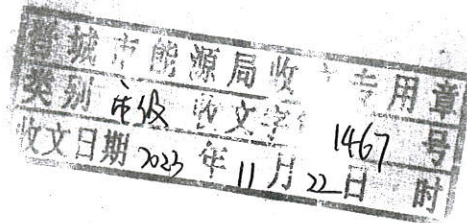 晋城市能源局收专用章
类别 市级 收文字 1467 号
收文日期 2023 年 11 月 22 日 时